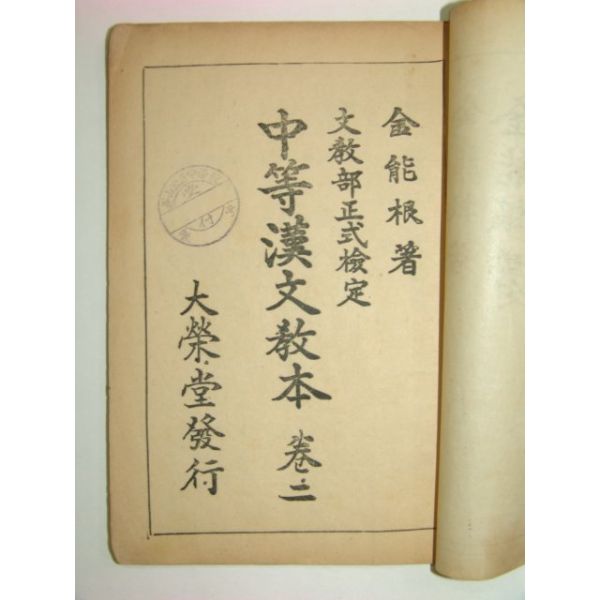 金能根著
文敎部正式檢定
中等漢文敎本 卷二
大榮堂發行